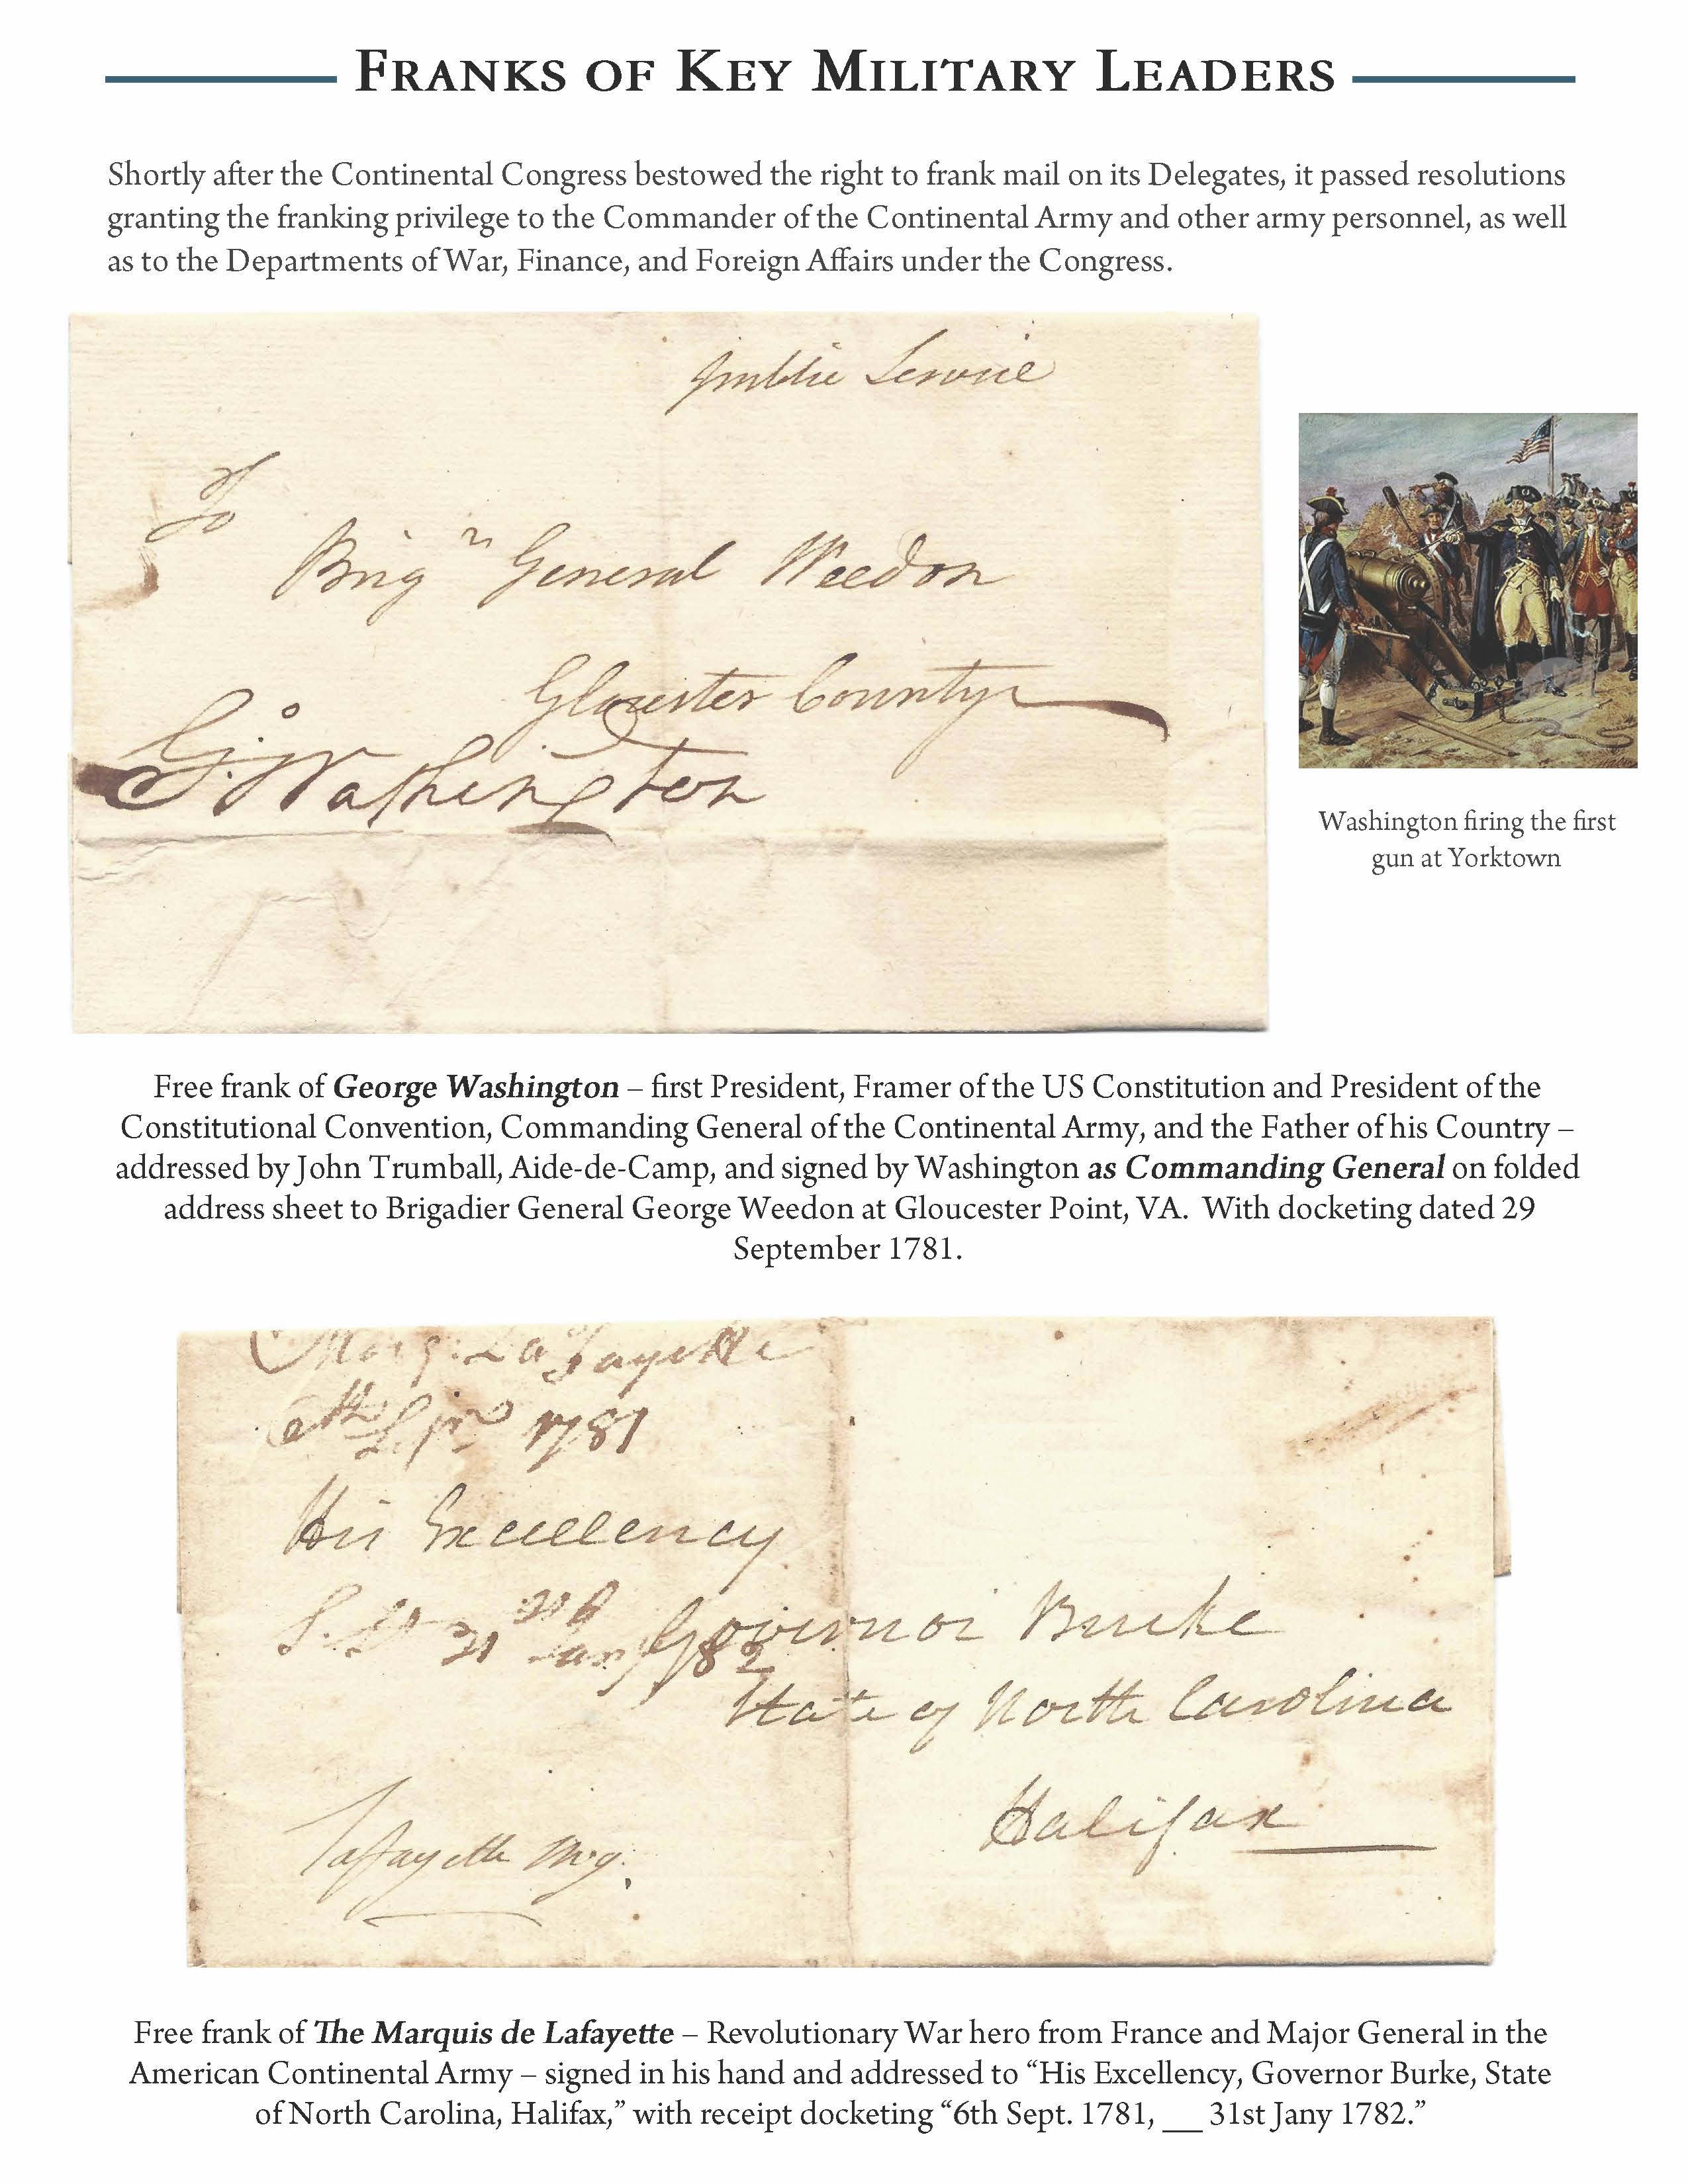 FRANKS OF KEY MILITARY LEADERS
Shortly after the Continental Congress bestowed the right to frank mail on its Delegates, it passed resolutions
granting the franking privilege to the Commander of the Continental Army and other army personnel, as well
as to the Departments of War, Finance, and Foreign Affairs under the Congress.
Public Service
To
Brigr General Weedon
Gloucester County
Go Washington
Washington firing the first
gun at Yorktown
Free frank of George Washington – first President, Framer of the US Constitution and President of the
Constitutional Convention, Commanding General of the Continental Army, and the Father of his Country –
addressed by John Trumball, Aide-de-Camp, and signed by Washington as Commanding General on folded
address sheet to Brigadier General George Weedon at Gloucester Point, VA. With docketing dated 29
September 1781.
Marq. La Fayette
6th Sepr 1781
His Excellency
31st Jany 1782
Governor Burke
State of North Carolina
Halifax
Lafayette M.g.
Free frank of The Marquis de Lafayette – Revolutionary War hero from France and Major General in the
American Continental Army – signed in his hand and addressed to “His Excellency, Governor Burke, State
of North Carolina, Halifax,” with receipt docketing “6th Sept. 1781, __ 31st Jany 1782.”